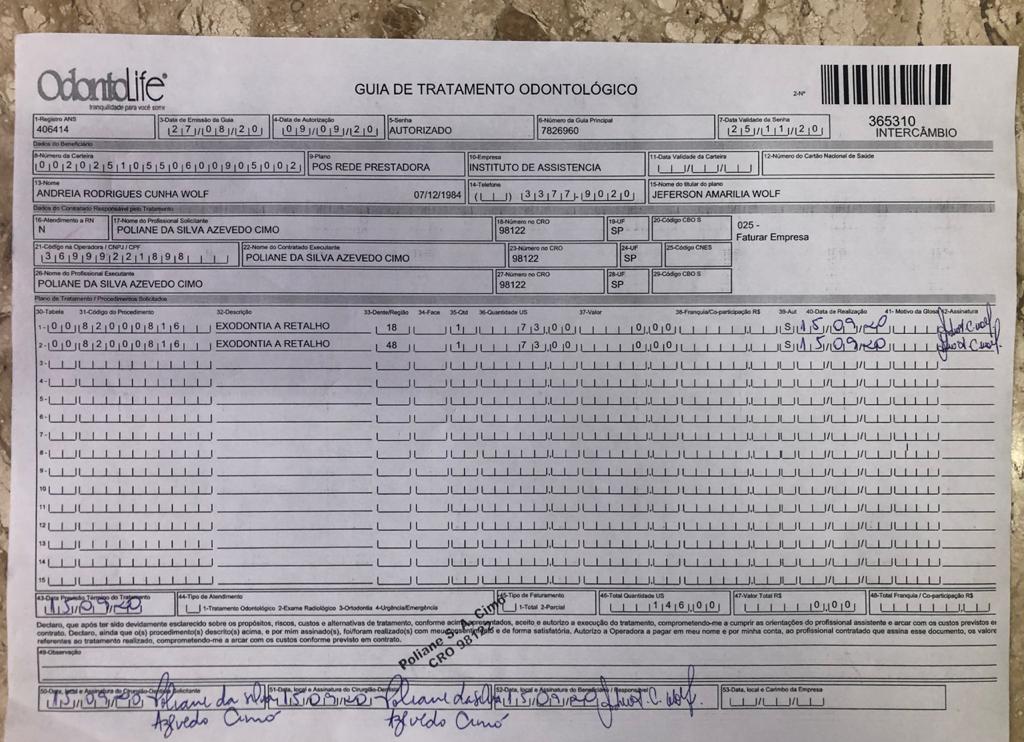 OdontoLife®
tranquilidade para você sorrir
GUIA DE TRATAMENTO ODONTOLÓGICO
2-Nº
365310
INTERCÂMBIO
1-Registro ANS
406414
3-Data de Emissão da Guia
27/08/20
4-Data de Autorização
09/09/20
5-Senha
AUTORIZADO
6-Número da Guia Principal
7826960
7-Data Validade da Senha
25/11/20
Dados do Beneficiário
8-Número da Carteira
00202510550600905 02
9-Plano
POS REDE PRESTADORA
10-Empresa
INSTITUTO DE ASSISTENCIA
11-Data Validade da Carteira
12-Número do Cartão Nacional de Saúde
13-Nome
ANDREIA RODRIGUES CUNHA WOLF 07/12/1984
14-Telefone
3377-9020
15-Nome do titular do plano
JEFERSON AMARILIA WOLF
Dados do Contratado Responsável pelo Tratamento
16-Atendimento a RN
N
17-Nome do Profissional Solicitante
POLIANE DA SILVA AZEVEDO CIMO
18-Número no CRO
98122
19-UF
SP
20-Código CBO S
025 -
Faturar Empresa
21-Código na Operadora / CNPJ / CPF
36999221898
22-Nome do Contratado Executante
POLIANE DA SILVA AZEVEDO CIMO
23-Número no CRO
98122
24-UF
SP
25-Código CNES
26-Nome do Profissional Executante
POLIANE DA SILVA AZEVEDO CIMO
27-Número no CRO
98122
28-UF
SP
29-Código CBO S
Plano de Tratamento / Procedimentos Solicitados
30-Tabela 31-Código do Procedimento 32-Descrição 33-Dente/Região 34-Face 35-Qtd 36-Quantidade US 37-Valor 38-Franquia/Co-participação R$ 39-Aut 40-Data de Realização 41- Motivo da Glosa 42-Assinatura
1- 00 82000816 EXODONTIA A RETALHO 18 1 73,00 0,00 S 15/09/20
2- 00 82000816 EXODONTIA A RETALHO 48 1 73,00 0,00 S 15/09/20
3-
4-
5-
6-
7-
8-
9-
10
11
12
13
14
15
43-Data Previsão Término do Tratamento
15/09/20
44-Tipo de Atendimento
1-Tratamento Odontológico 2-Exame Radiológico 3-Ortodontia 4-Urgência/Emergência
45-Tipo de Faturamento
1-Total 2-Parcial
46-Total Quantidade US
146,00
47-Valor Total R$
0,00
48-Total Franquia / Co-participação R$
Declaro, que após ter sido devidamente esclarecido sobre os propósitos, riscos, custos e alternativas de tratamento, conforme acima apresentados, aceito e autorizo a execução do tratamento, comprometendo-me a cumprir as orientações do profissional assistente e arcar com os custos previstos em
contrato. Declaro, ainda que o(s) procedimento(s) descrito(s) acima, e por mim assinado(s), foi/foram realizado(s) com meu consentimento e de forma satisfatória. Autorizo a Operadora a pagar em meu nome e por minha conta, ao profissional contratado que assina esse documento, os valores
referentes ao tratamento realizado, comprometendo-me a arcar com os custos conforme previsto em contrato.
Poliane S. A. Cimo
CRO 98122
49-Observação
50-Data, local e Assinatura do Cirurgião-Dentista Solicitante
15/09/20 Poliane da Silva
Azevedo Cimó
51-Data, local e Assinatura do Cirurgião-Dentista
15/09/20 Poliane da Silva
Azevedo Cimó
52-Data, local e Assinatura do Beneficiário / Responsável
15/09/20
53-Data, local e Carimbo da Empresa